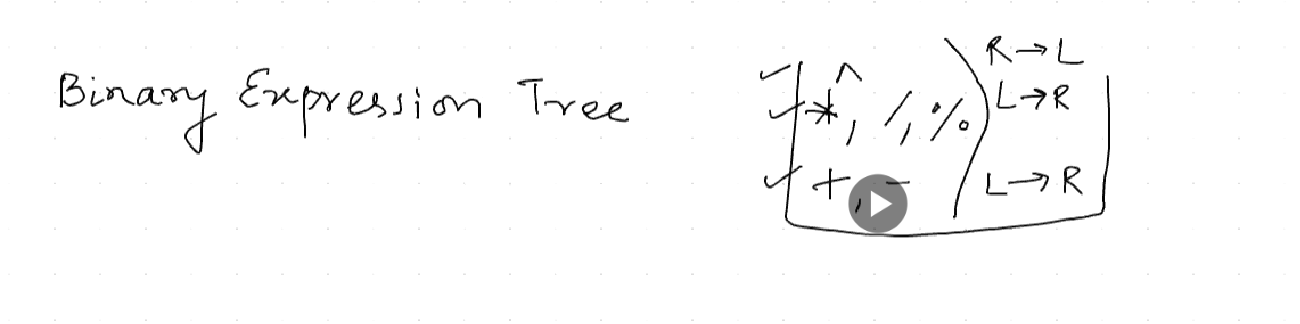 Binary Expression Tree
^ R→L
*, /, % L→R
+, - L→R